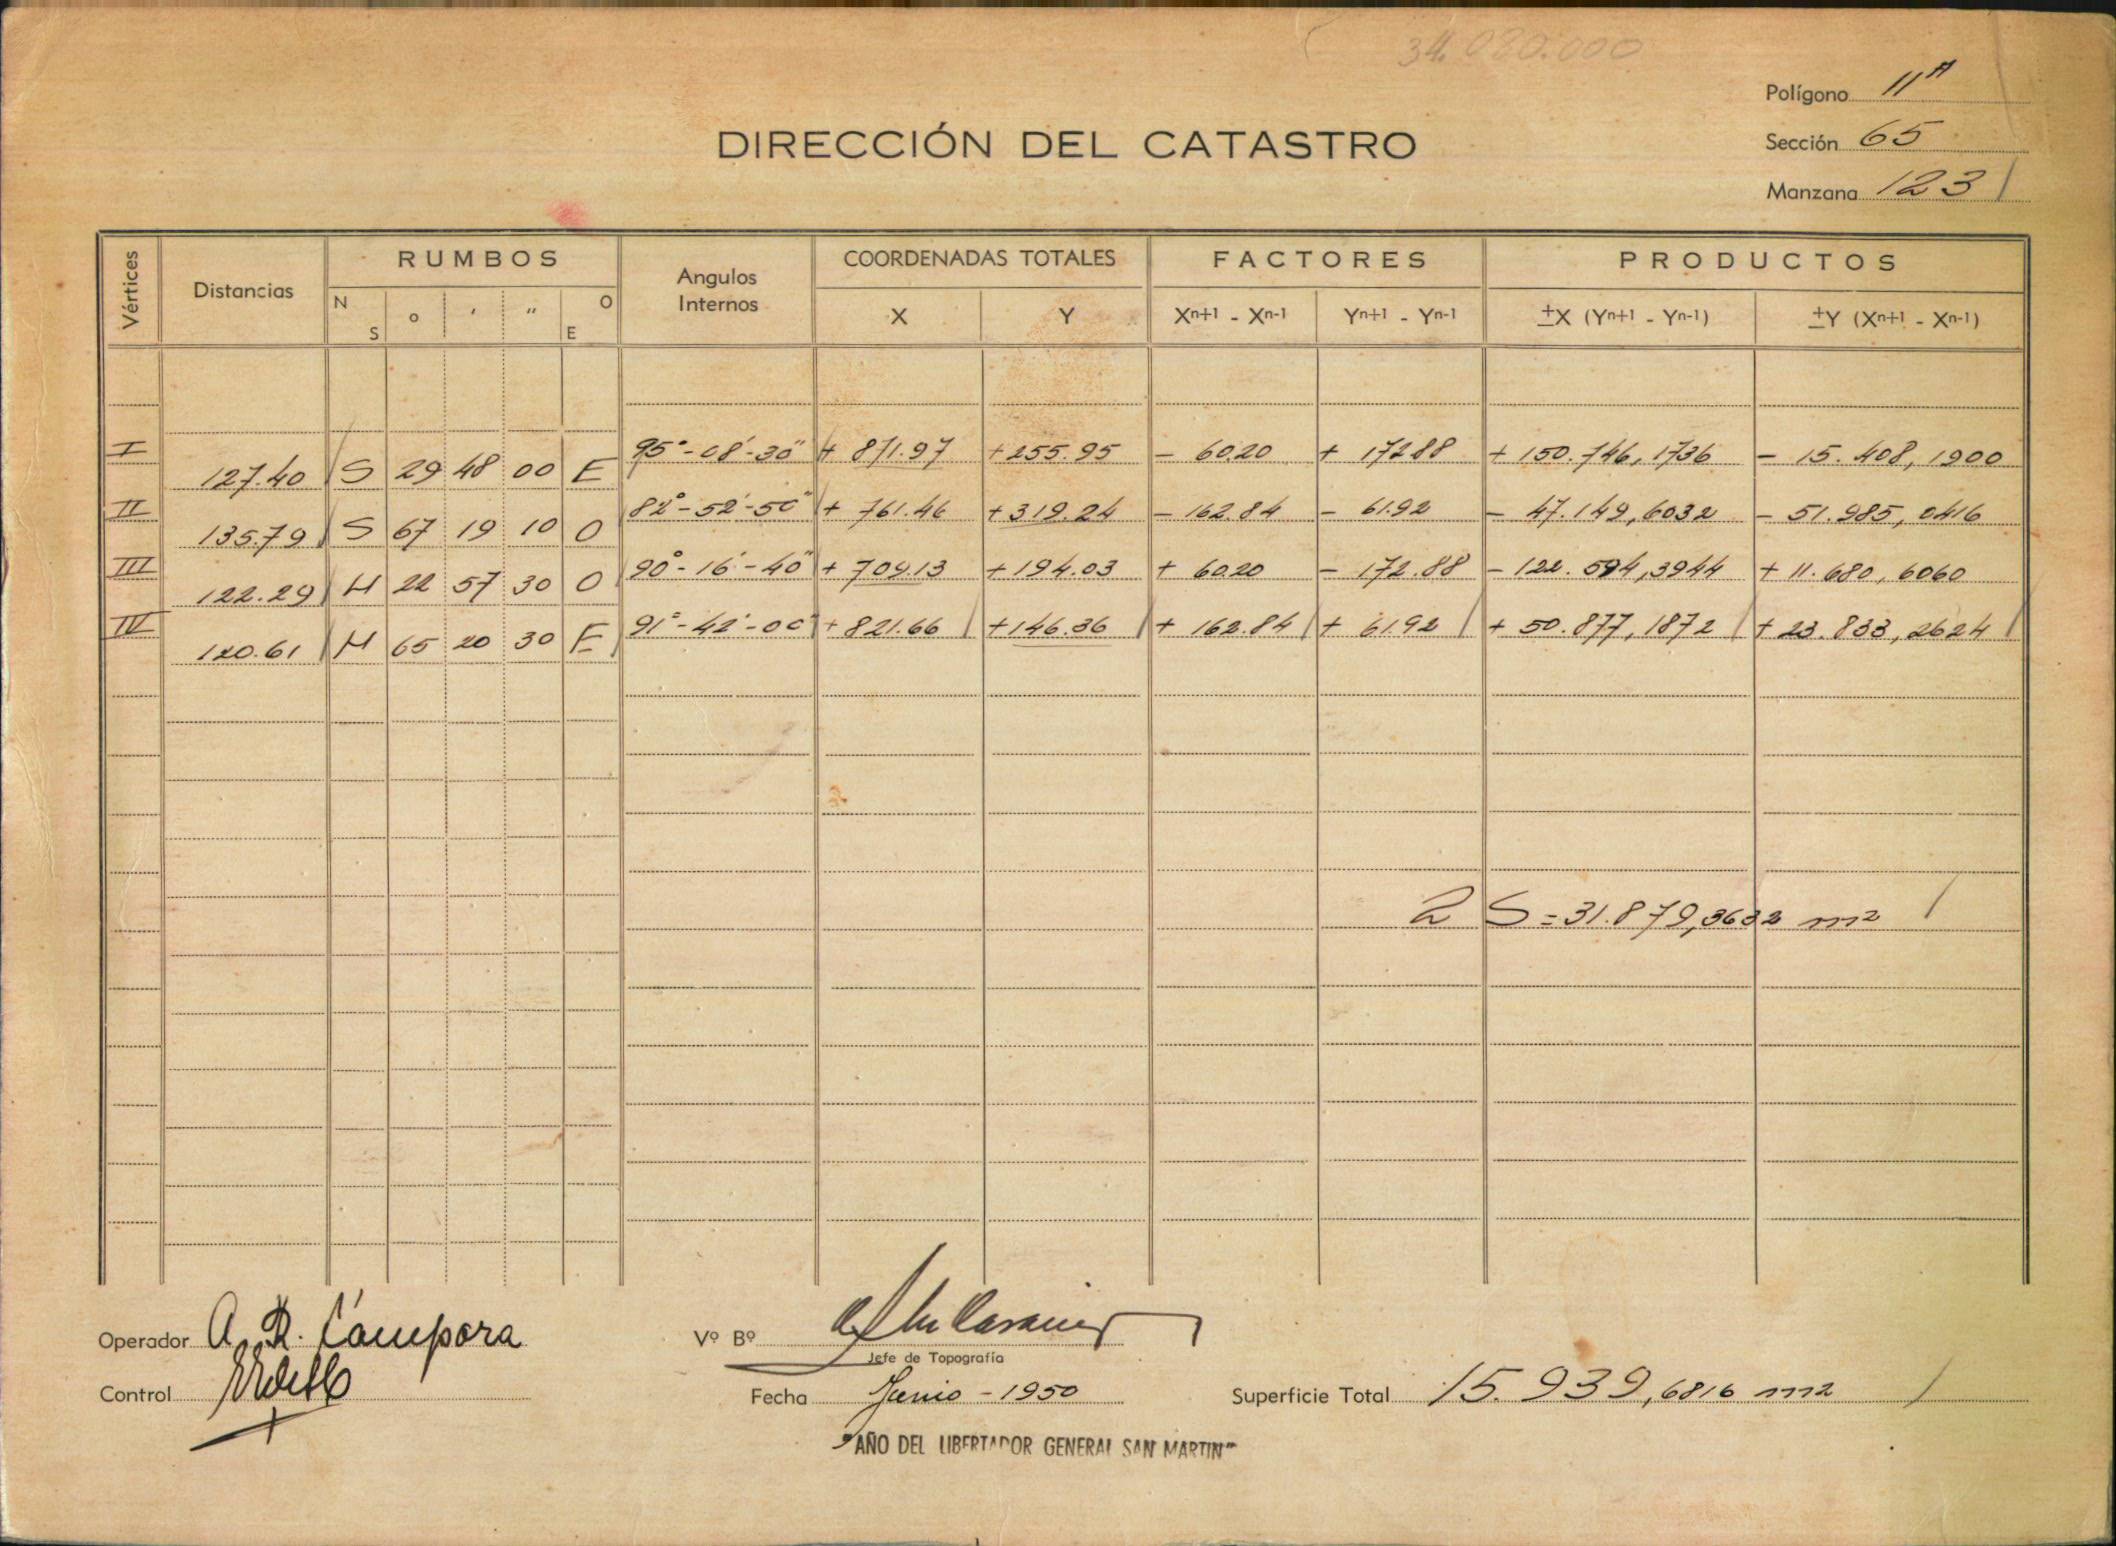 34.080.000
Polígono 11A
DIRECCIÓN DEL CATASTRO
Sección 65
Manzana 123
Vértices Distancias RUMBOS Angulos Internos COORDENADAS TOTALES FACTORES PRODUCTOS
N S o ' " O E X Y Xn+1 - Xn-1 Yn+1 - Yn-1 ±X (Yn+1 - Yn-1) ±Y (Xn+1 - Xn-1)
I 95°-08'-30" + 871.97 +255.95 - 60.20 + 172.88 + 150.746,1736 - 15.408,1900
127.40 S 29 48 00 E
II 82°-52'-50" + 761.46 +319.24 - 162.84 - 61.92 - 47.149,6032 - 51.985,0416
135.79 S 67 19 10 O
III 90°-16'-40" + 709.13 +194.03 + 60.20 - 172.88 - 122.594,3944 + 11.680,6060
122.29 N 22 57 30 O
IV 91°-42'-00" + 821.66 +146.36 + 162.84 + 61.92 + 50.877,1872 + 23.833,2624
120.61 N 65 20 30 E
2 S = 31.879,3632 m2
Operador A. R. Cámpora
Vº Bº
Jefe de Topografía
Control
Fecha Junio - 1950
Superficie Total 15.939,6816 m2
"AÑO DEL LIBERTADOR GENERAL SAN MARTIN"